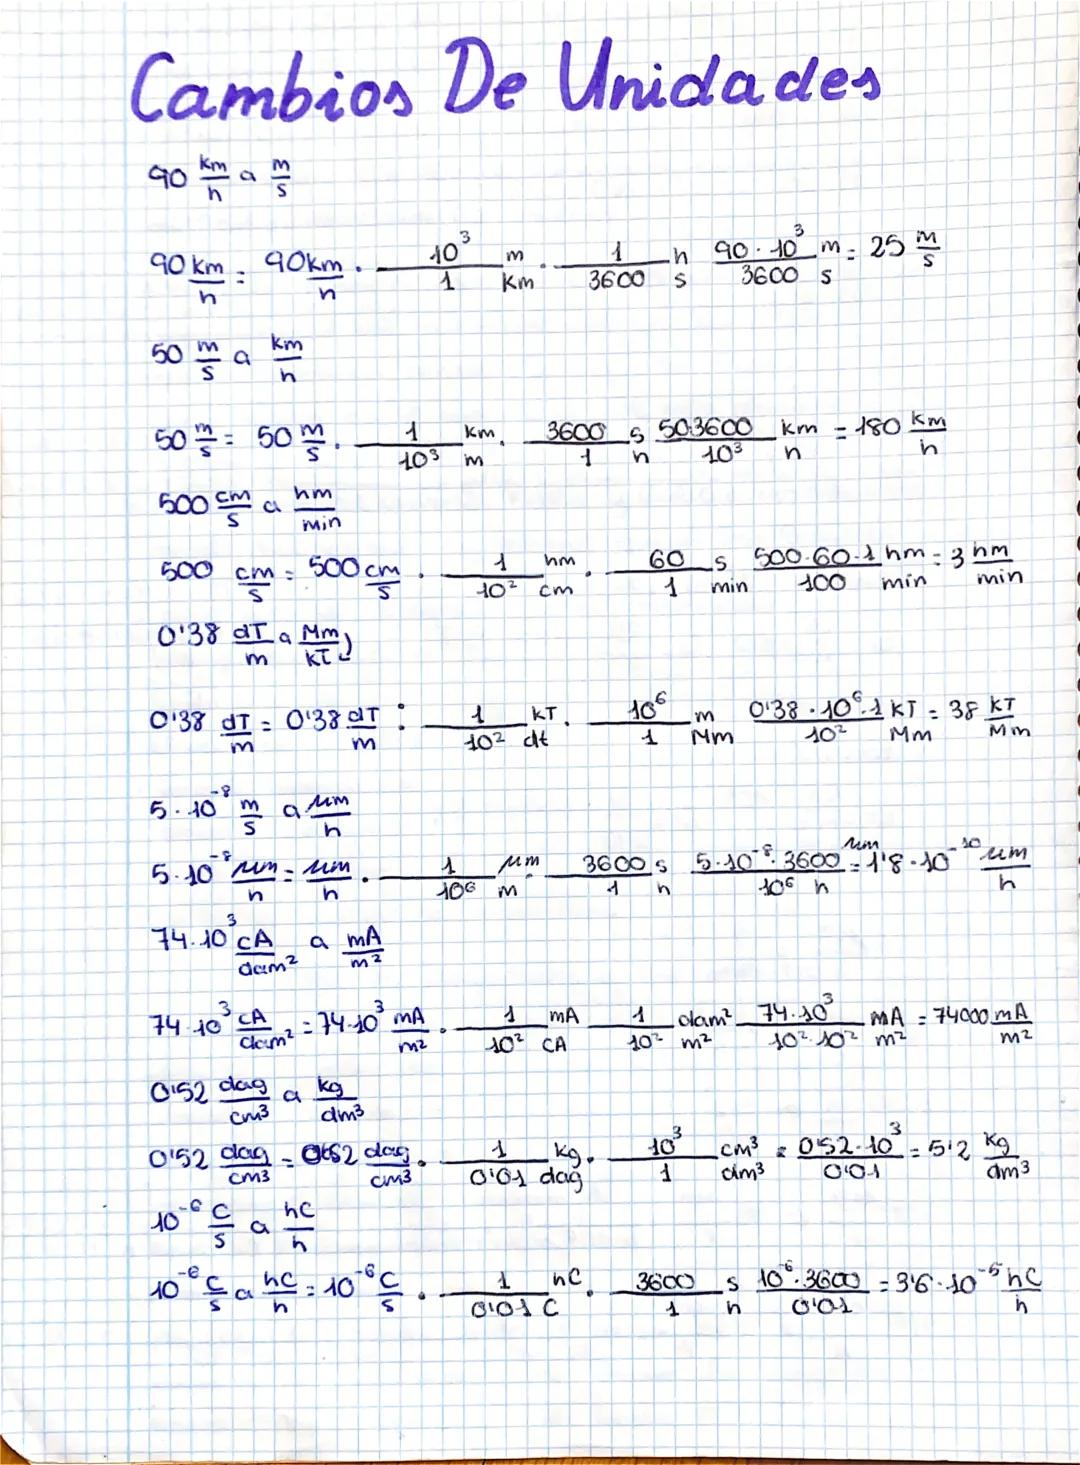 Cambios De Unidades
90 km/h a m/s
90 km/h = 90 km/h · 10³/1 m/km · 1/3600 h/s 90·10³/3600 m/s = 25 m/s
50 m/s a km/h
50 m/s = 50 m/s · 1/10³ km/m · 3600/1 s/h 50·3600/10³ km/h = 180 km/h
500 cm/s a hm/min
500 cm/s = 500 cm/s · 1/10² hm/cm · 60/1 s/min 500·60·1/100 hm/min = 3 hm/min
0'38 dT/m a Mm/kT
0'38 dT/m = 0'38 dT/m : 1/10² kT/dt · 10⁶/1 m/Mm 0'38·10⁶·1/10² kT/Mm = 38 kT/Mm
5·10⁻⁸ m/s a µm/h
5·10⁻⁸ µm/h = µm/h · 1/10⁶ µm/m · 3600/1 s/h 5·10⁻⁸·3600/10⁶ µm/h = 1'8·10⁻¹⁰ µm/h
74·10³ cA/dam² a mA/m²
74·10³ cA/dam² = 74·10³ mA/m² · 1/10² mA/CA 1/10² dam²/m² 74·10³/10²·10² mA/m² = 74000 mA/m²
0'52 dag/cm³ a kg/dm³
0'52 dag/cm³ = 0'52 dag/cm³ · 1/0'01 kg/dag · 10³/1 cm³/dm³ = 0'52·10³/0'01 = 5'2 kg/dm³
10⁻⁶ C/s a hC/h
10⁻⁶ C/s a hC/h = 10⁻⁶ C/s · 1/0'01 hC/C · 3600/1 s/h 10⁻⁶·3600/0'01 = 3'6·10⁻⁵ hC/h